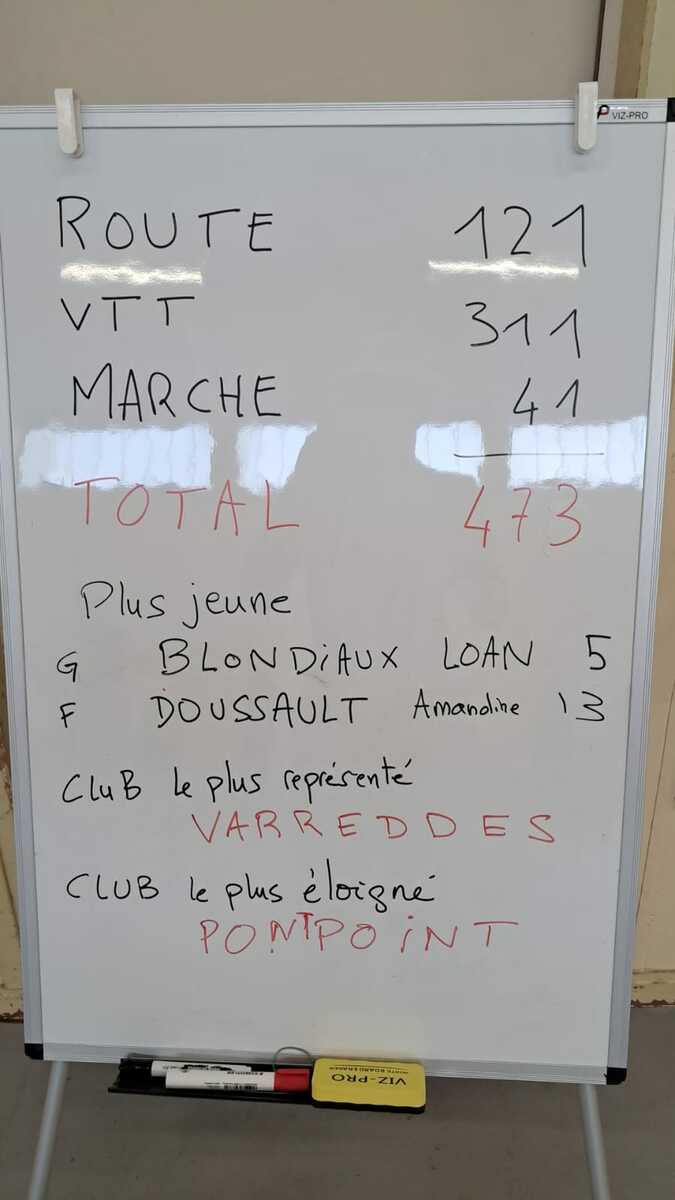 VIZ-PRO
ROUTE 121
VTT 311
MARCHE 41
TOTAL 473
Plus jeune
G BLONDiAUX LOAN 5
F DOUSSAULT Amandine 13
CLuB le plus représenté
VARREDDES
CLUB le plus éloigné
PONTPOiNT
VIZ-PRO
WHITE BOARD ERASER